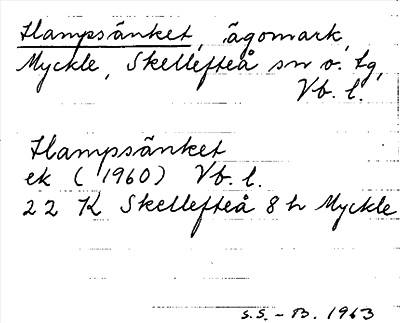 Hampsänket, ägomark,
Myckle, Skellefteå sn o. tg,
Vb. l.
Hampsänket
ek (1960) Vb. l.
22 K Skellefteå 8 h Myckle
S.S. - B. 1963